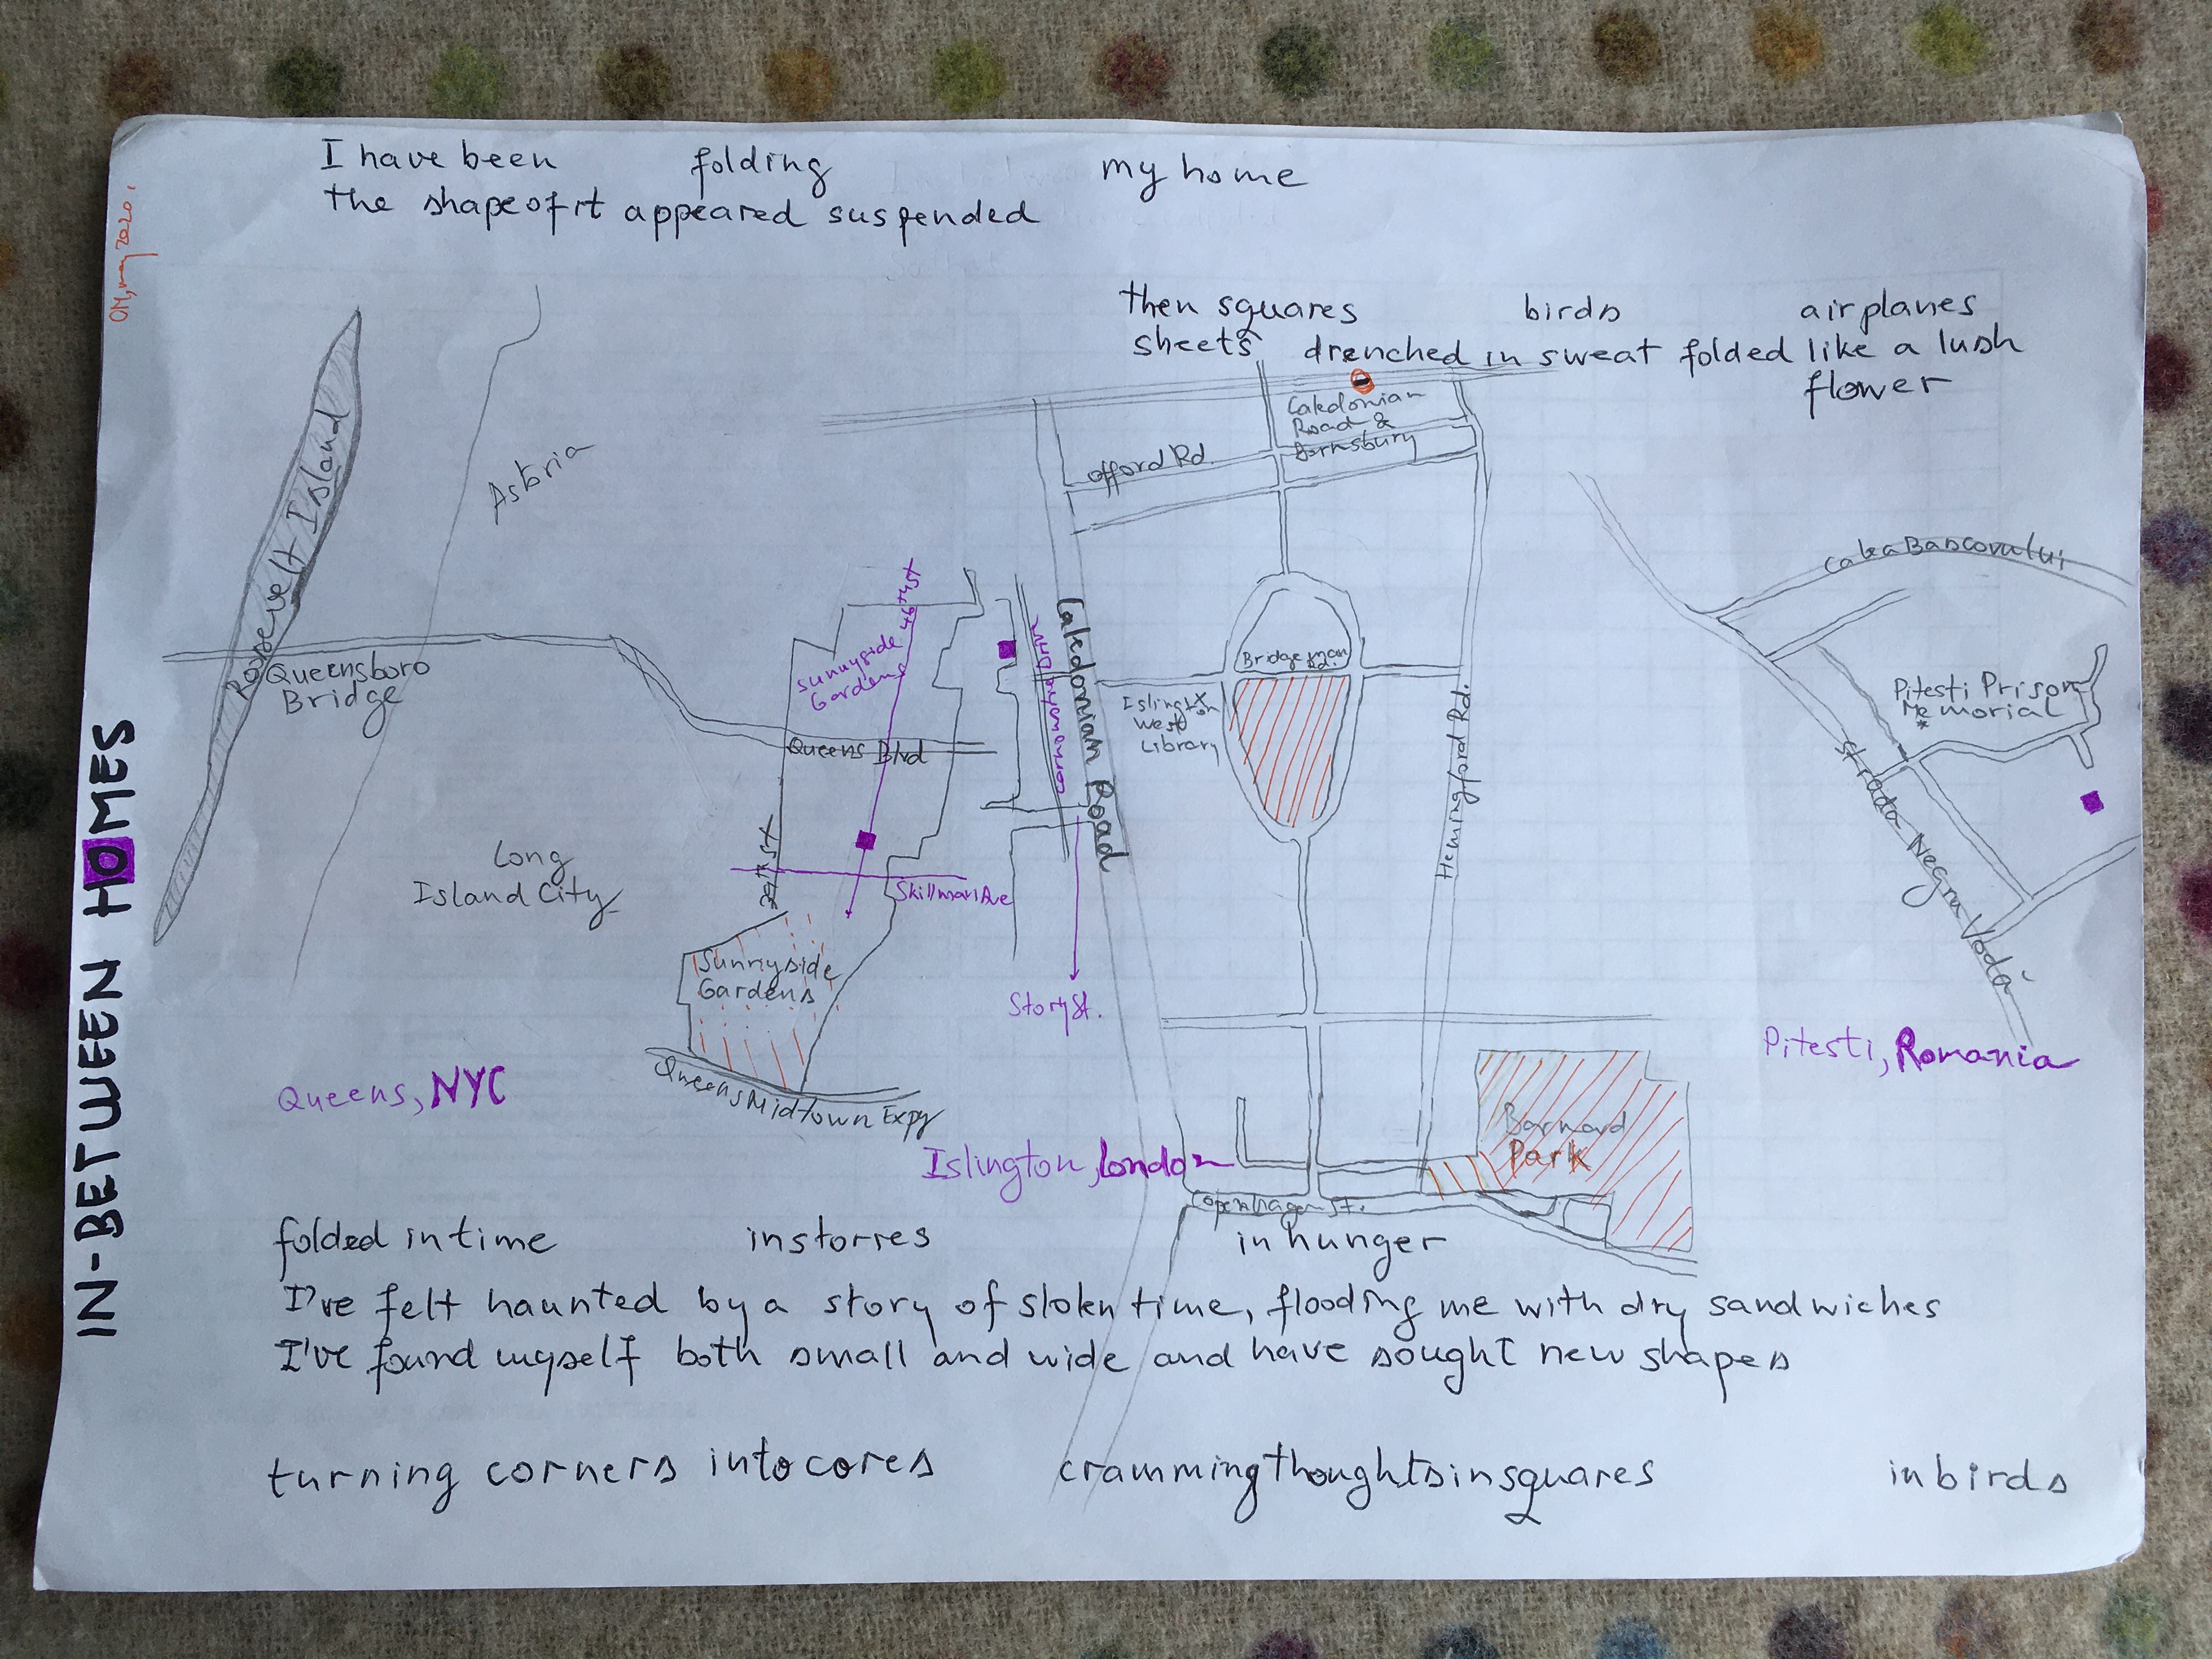 I have been folding my home
the shape of it appeared suspended
OM, may 2020.
then squares birds airplanes
sheets drenched in sweat folded like a lush
flower
IN-BETWEEN HOMES
Roosevelt Island
Astoria
Queensboro
Bridge
Long
Island City
Queens, NYC
46th St
Sunnyside
Gardens
Queens Blvd
39th St
Skillman Ave
Sunnyside
Gardens
Queens Midtown Expy
Caledonian
Road &
Barnsbury
Offord Rd.
Caledonian Road
Story St.
Bridgeman
Rd.
Islington
West
Library
Hemingford Rd.
Barnard
Park
Copenhagen St.
Islington, London
Calea Bascovului
Pitesti Prison
Memorial
*
Strada Negru Vodă
Pitesti, Romania
folded in time in stories in hunger
I've felt haunted by a story of stolen time, flooding me with dry sandwiches
I've found myself both small and wide and have sought new shapes
turning corners into cores cramming thoughts in squares in birds